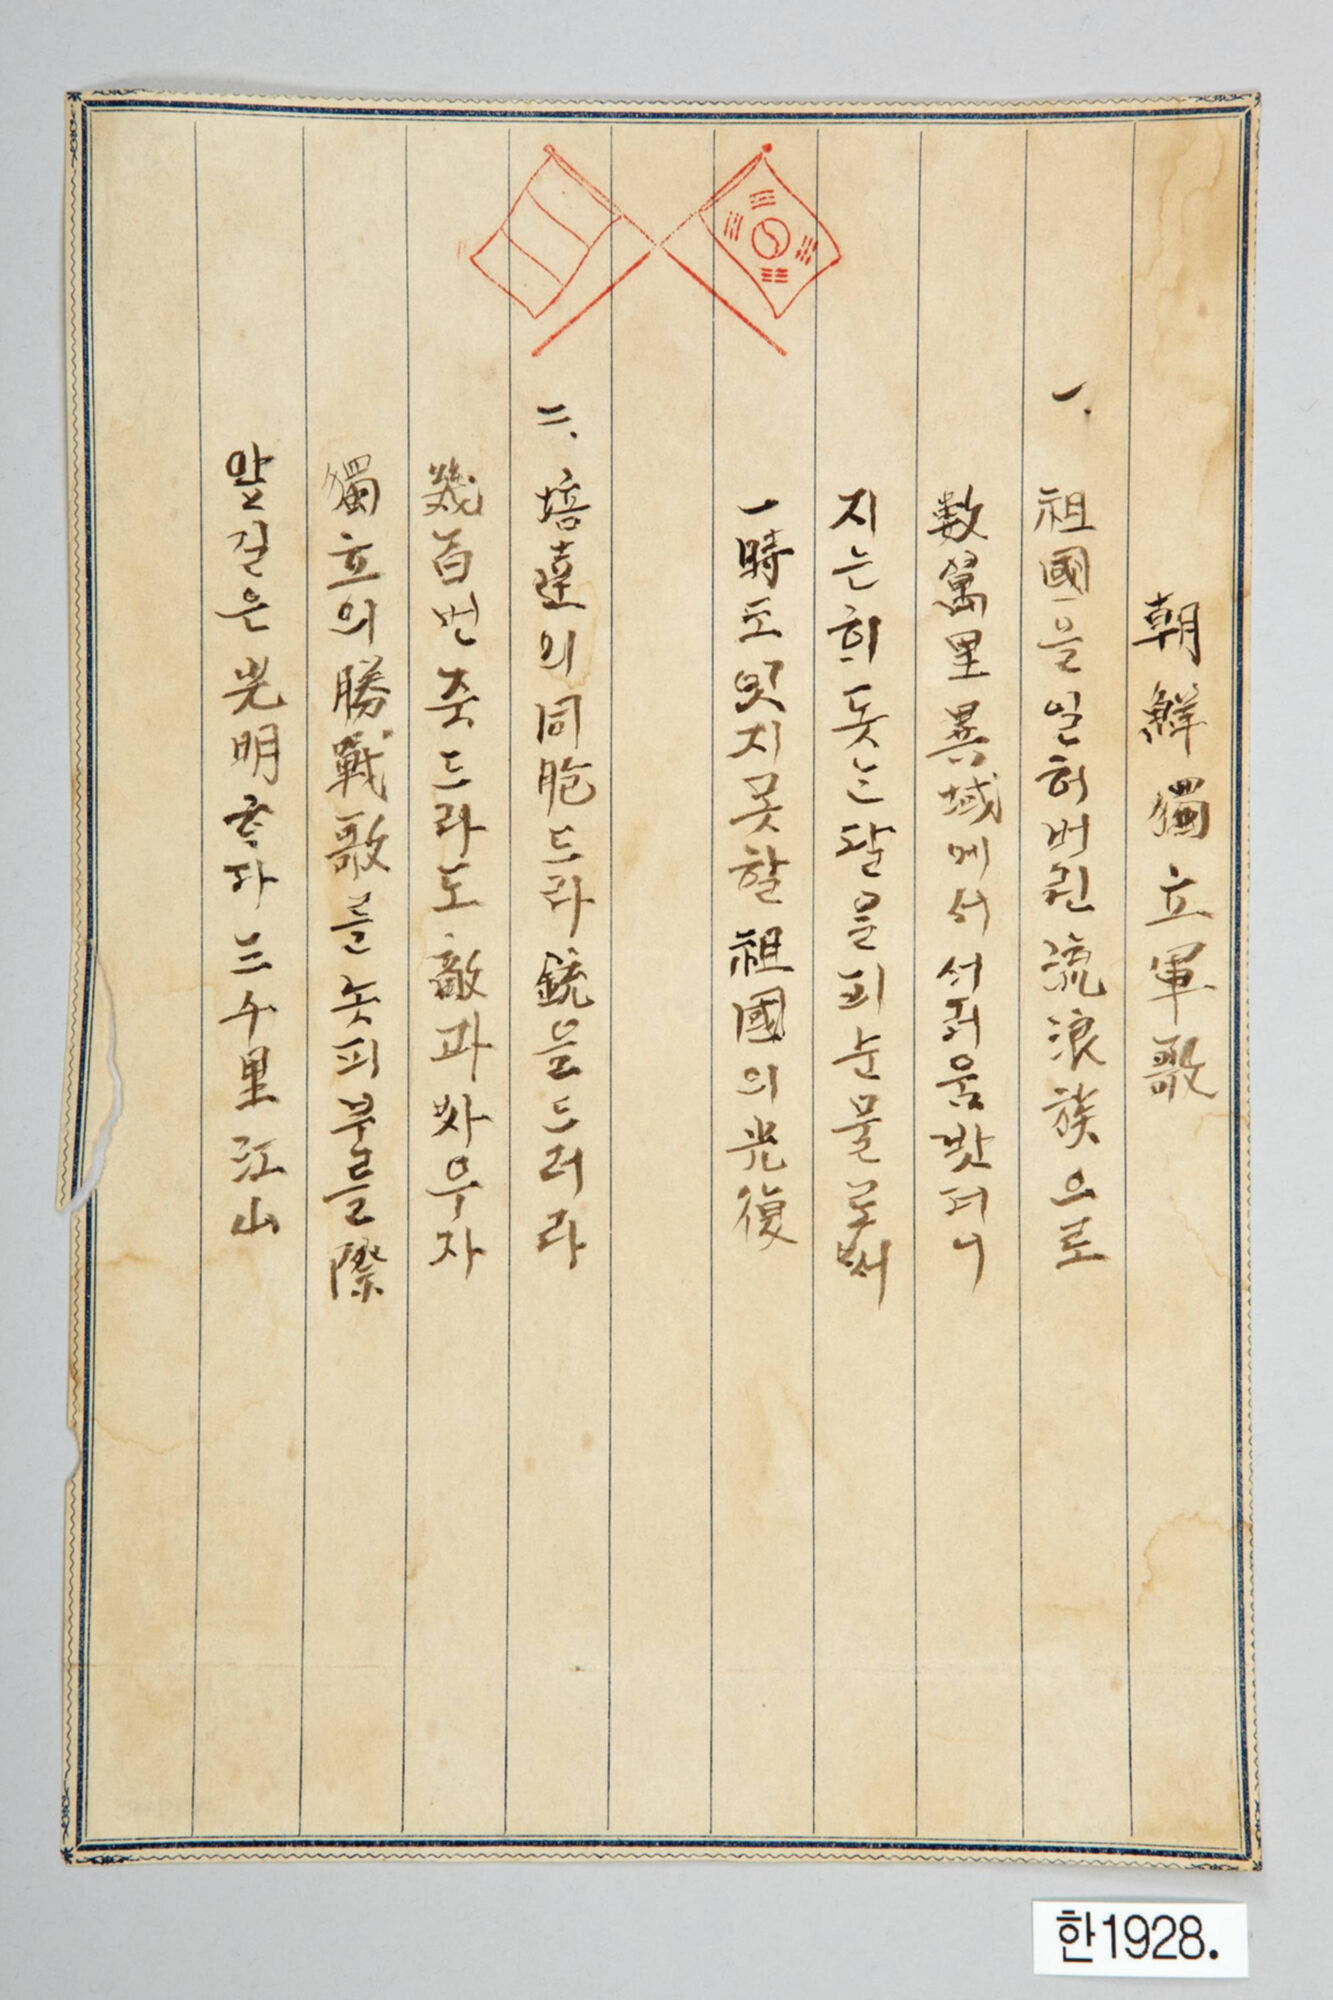 朝鮮獨立軍歌
一.
祖國을일허버린流浪族으로
數萬里異域에서서러움밧더니
지는히돗는달을피눈물로써
一時도잇지못할祖國의光復
二. 培達의同胞드라銃을드러라
幾百번죽드라도敵과싸우자
獨立의勝戰歌를놋피부를際
앞길은光明좋다三千里江山
한1928.